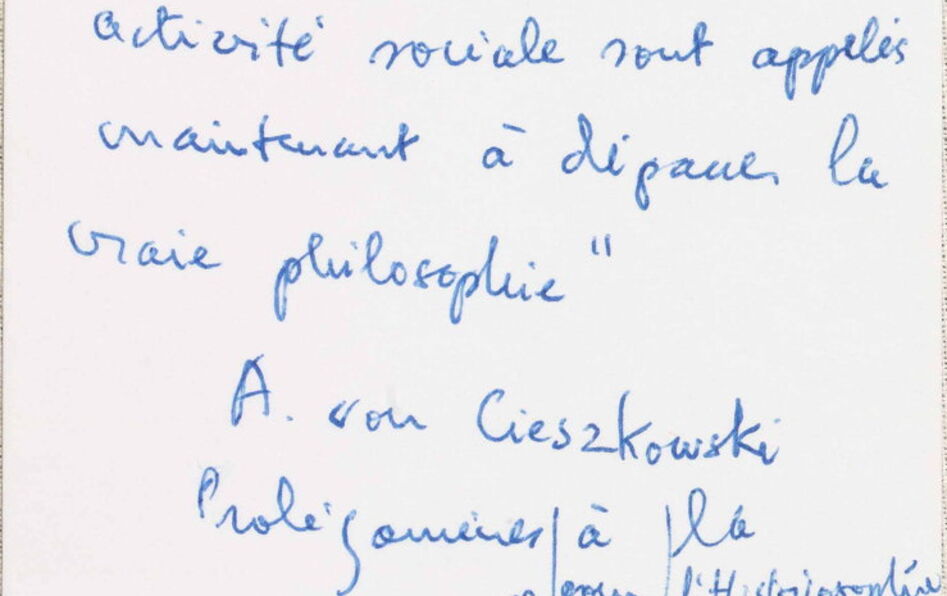 activité sociale sont appelés
maintenant à dépasser la
vraie philosophie"
A. von Cieszkowski
Prolégomènes à la
pour l'Historiosophie